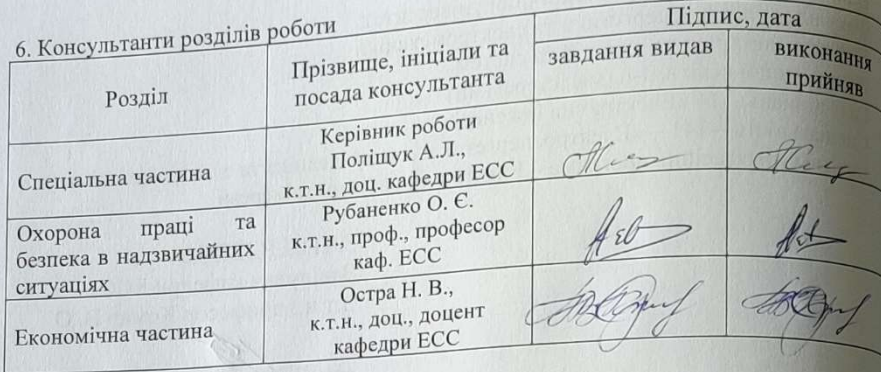 6. Консультанти розділів роботи
Розділ
Прізвище, ініціали та
посада консультанта
Підпис, дата
завдання видав
виконання
прийняв
Спеціальна частина
Керівник роботи
Поліщук А.Л.,
к.т.н., доц. кафедри ЕСС
Охорона праці та
безпека в надзвичайних
ситуаціях
Рубаненко О. Є.
к.т.н., проф., професор
каф. ЕСС
Економічна частина
Остра Н. В.,
к.т.н., доц., доцент
кафедри ЕСС